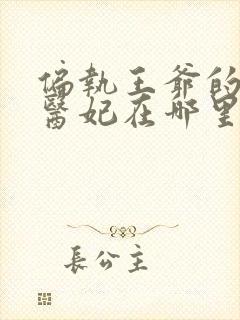 偏執王爺的
醫妃在哪里
長公主